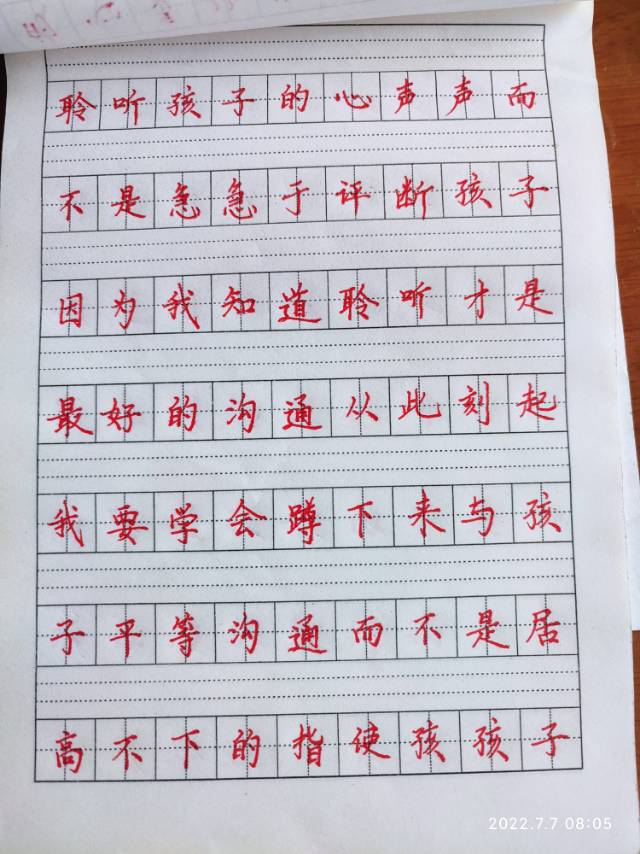 聆听孩子的心声声而
不是急急于评断孩子
因为我知道聆听才是
最好的沟通从此刻起
我要学会蹲下来与孩
子平等沟通而不是居
高不下的指使孩孩子
2022.7.7 08:05